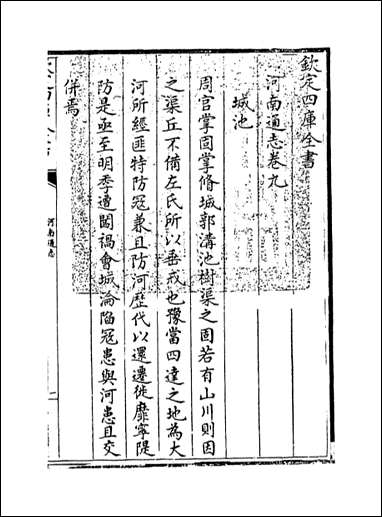 欽定四庫全書
河南通志卷九
城池
周官掌固掌脩城郭溝池樹渠之固若有山川則因
之渠丘不備左氏所以垂戒也豫當四達之地為大
河所經匪特防冦兼且防河歴代以還遷徙靡寧隄
防是亟至明季遭闖禍會城淪陷冦患與河患且交
併焉
河南通志